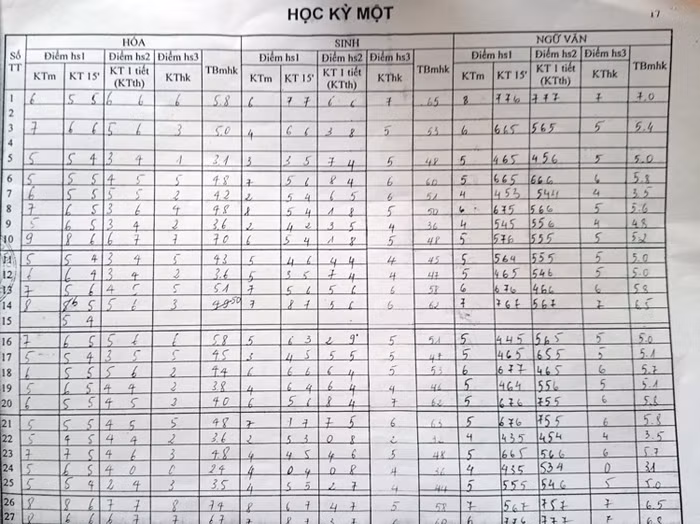 HỌC KỲ MỘT 17
Số TT HÓA SINH NGỮ VĂN
Điểm hs1 Điểm hs2 Điểm hs3 TBmhk Điểm hs1 Điểm hs2 Điểm hs3 TBmhk Điểm hs1 Điểm hs2 Điểm hs3 TBmhk
KTm KT 15' KT 1 tiết (KTth) KThk KTm KT 15' KT 1 tiết (KTth) KThk KTm KT 15' KT 1 tiết (KTth) KThk
1 6 5 5 6 6 6 6 5.8 6 7 7 6 6 7 65 8 776 777 7 7.0
2
3 7 6 6 5 6 3 5.0 4 6 6 3 8 5 53 6 665 565 5 5.4
4
5 5 5 4 3 4 1 31 3 3 5 7 4 5 48 5 465 456 5 5.0
6 5 5 5 4 5 5 48 7 5 6 8 4 6 60 5 665 666 6 5.8
7 6 5 5 5 5 2 42 2 5 4 6 5 6 51 4 453 544 4 3.5
8 7 6 5 3 6 4 48 8 5 4 1 8 5 50 6 675 566 5 5.6
9 5 6 5 3 4 2 3.6 2 4 2 3 5 4 36 4 545 556 4
10 9 8 6 6 7 7 70 6 5 4 1 8 5 48 5 576 555 5 5.2
11 5 5 4 3 4 5 43 5 4 6 4 4 4 45 5 564 555 5 5.0
12 6 6 4 3 4 2 3.6 5 3 5 7 4 4 47 5 465 546 5 5.0
13 7 5 6 4 5 5 51 7 5 6 5 6 6 58 6 676 466 6
14 8 5 5 6 3 50 7 8 7 3 6 6 62 7 767 567 7 6.5
15 5 4
16 7 6 5 5 6 6 5.8 5 6 3 2 9 5 51 5 445 565 5 5.0
17 5 5 4 3 5 5 45 3 4 5 5 5 5 47 5 465 655 5 5.1
18 6 5 5 5 6 2 44 6 6 6 6 4 5 53 6 677 465 6 5.7
19 5 6 5 4 4 2 38 4 6 4 6 4 4 46 5 464 556 5 5.1
20 6 5 5 4 5 3 40 6 5 6 8 4 7 62 5 676 755 6 5.8
21 5 5 5 4 5 5 48 7 1 7 7 5 6 5 676 755 6 5.8
22 5 4 5 4 4 2 3.6 2 5 3 0 8 2 4 435 454 4 3.5
23 7 7 5 4 6 3 48 4 4 5 4 6 5 48 5 665 566 6 5.7
24 5 6 5 4 0 0 24 4 0 4 0 8 4 36 4 435 534 0 31
25 5 5 4 2 4 3 35 4 5 5 2 7 4 44 5 555 546 5 5.0
26 8 8 6 7 7 8 74 8 6 7 4 7 5 58 7 567 757 7 6.5
27 8 6 6 6 7 7 67 7 6 776 777 7 6.8